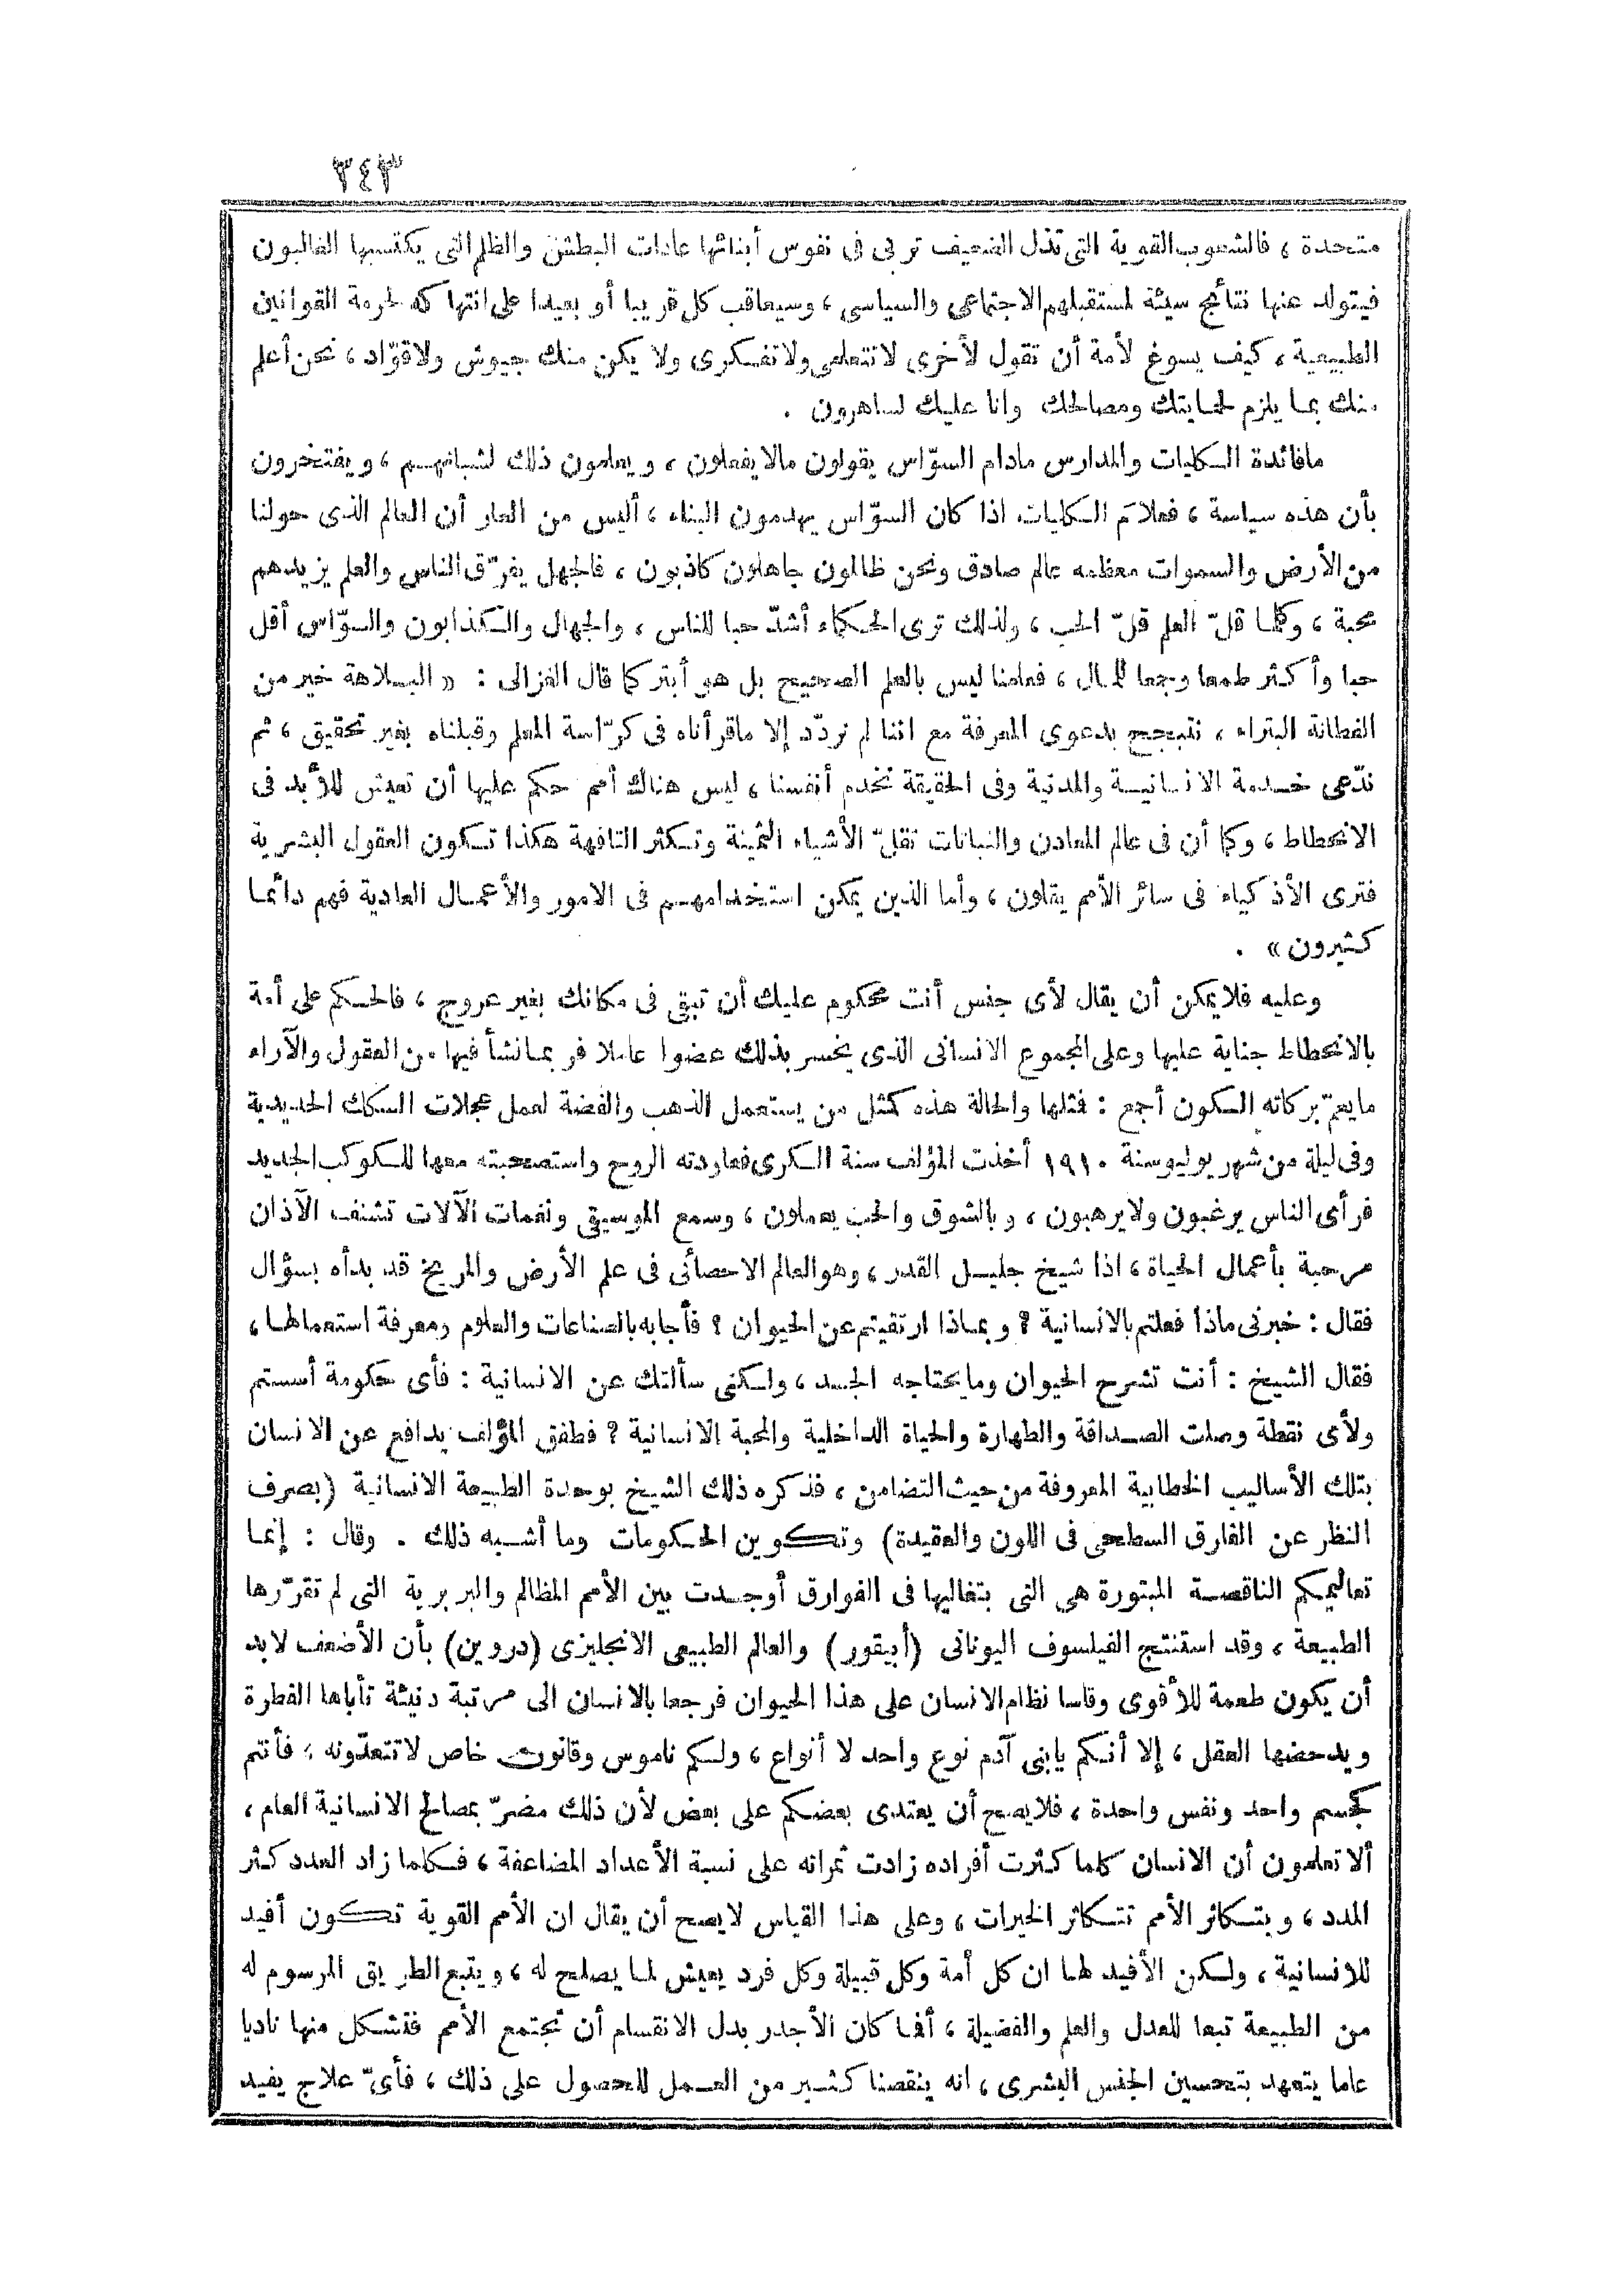 ٣٤٣
متحدة ، فالشعوب القوية التى تذل الضعيف تربى فى نفوس أبنائها عادات البطش والظلم التى يكتسبها الغالبون
فيتولد عنها نتائج سيئة لمستقبلهم الاجتماعى والسياسى ، وسيعاقب كل قريبا أو بعيدا على انتهاكه لحرمة القوانين
الطبيعية ، كيف يسوغ لأمة أن تقول لأخرى لا تتعلمى ولا تفكرى ولا يكن منك جيوش ولا قوّاد ، نحن أعلم
منك بما يلزم لحمايتك ومصالحك وانا عليك لساهرون .
مافائدة الكليات والمدارس مادام السوّاس يقولون مالا يفعلون ، ويعلمون ذلك لشبانهم ، ويفتخرون
بأن هذه سياسة ، فعلامَ الكليات اذا كان السوّاس يهدمون البناء ، أليس من العار أن العالم الذى حولنا
من الأرض والسموات معظمه عالم صادق ونحن ظالمون جاهلون كاذبون ، فالجهل يفرّق الناس والعلم يزيدهم
محبة ، وكلما قلّ العلم قلّ الحب ، ولذلك ترى الحكماء أشدّ حبا للناس ، والجهال والكذابون والسوّاس أقل
حبا وأكثر طمعا وجمعا للمال ، فعلمنا ليس بالعلم الصحيح بل هو أبتر كما قال الغزالى : « البلاهة خير من
الفطانة البتراء ، نتبجح بدعوى المعرفة مع اننا لم نردّد إلا ماقرأناه فى كرّاسة المعلم وقبلناه بغير تحقيق ، ثم
ندّعى خدمة الانسانية والمدنية وفى الحقيقة نخدم أنفسنا ، ليس هناك أمم حكم عليها أن تعيش للأبد فى
الانحطاط ، وكما أن فى عالم المعادن والنباتات تقلّ الأشياء الثمينة وتكثر التافهة هكذا تكون العقول البشرية
فترى الأذكياء فى سائر الأمم يقلون ، وأما الذين يمكن استخدامهم فى الامور والأعمال العادية فهم دائما
كثيرون » .
وعليه فلا يمكن أن يقال لأى جنس أنت محكوم عليك أن تبقى فى مكانك بغير عروج ، فالحكم على أمة
بالانحطاط جناية عليها وعلى المجموع الانسانى الذى يخسر بذلك عضوا عاملا فربما نشأ فيها من العقول والآراء
مايعمّ بركاته الكون أجمع : فمثلها والحالة هذه كمثل من يستعمل الذهب والفضة لعمل عجلات السكك الحديدية
وفى ليلة من شهر يوليوسنة ١٩١٠ أخذت المؤلف سنة الكرى فعاودته الروح واستصحبته معها للكوكب الجديد
فرأى الناس يرغبون ولا يرهبون ، وبالشوق والحب يعملون ، وسمع الموسيقى ونغمات الآلات تشنف الآذان
مرحبة بأعمال الحياة ، اذا شيخ جليل القدر ، وهو العالم الاحصائى فى علم الأرض والمريخ قد بدأه بسؤال
فقال : خبرنى ماذا فعلتم بالانسانية ؟ وبماذا ارتقيتم عن الحيوان ؟ فأجابه بالصناعات والعلوم ومعرفة استعمالها ،
فقال الشيخ : أنت تشرح الحيوان ومايحتاجه الجسد ، ولكنى سألتك عن الانسانية : فأى حكومة أسستم
ولأى نقطة وصلت الصداقة والطهارة والحياة الداخلية والمحبة الانسانية ؟ فطفق المؤلف يدافع عن الانسان
بتلك الأساليب الخطابية المعروفة من حيث التضامن ، فذكره ذلك الشيخ بوحدة الطبيعة الانسانية (بصرف
النظر عن الفارق السطحى فى اللون والعقيدة) وتكوين الحكومات وما أشبه ذلك . وقال : إنما
تعاليمكم الناقصة المبتورة هى التى بتغاليها فى الفوارق أوجدت بين الأمم المظالم والبربرية التى لم تقرّرها
الطبيعة ، وقد استنتج الفيلسوف اليونانى (أبيقور) والعالم الطبيعى الانجليزى (دروين) بأن الأضعف لابد
أن يكون طعمة للأقوى وقاسا نظام الانسان على هذا الحيوان فرجعا بالانسان الى مرتبة دنيئة تأباها الفطرة
ويدحضها العقل ، إلا أنكم يابنى آدم نوع واحد لا أنواع ، ولكم ناموس وقانون خاص لا تتعدّونه ؛ فأنتم
كجسم واحد ونفس واحدة ، فلا يصح أن يعتدى بعضكم على بعض لأن ذلك مضرّ بمصالح الانسانية العام ،
ألا تعلمون أن الانسان كلما كثرت أفراده زادت ثمراته على نسبة الأعداد المضاعفة ، فكلما زاد العدد كثر
المدد ، وبتكاثر الأمم تتكاثر الخيرات ، وعلى هذا القياس لا يصح أن يقال ان الأمم القوية تكون أفيد
للانسانية ، ولكن الأفيد لها ان كل أمة وكل قبيلة وكل فرد يعيش لما يصلح له ، ويتبع الطريق المرسوم له
من الطبيعة تبعا للعدل والعلم والفضيلة ، أفما كان الأجدر بدل الانقسام أن تجتمع الأمم فتشكل منها ناديا
عاما يتعهد بتحسين الجنس البشرى ، انه ينقصنا كثير من العمل للحصول على ذلك ، فأىّ علاج يفيد